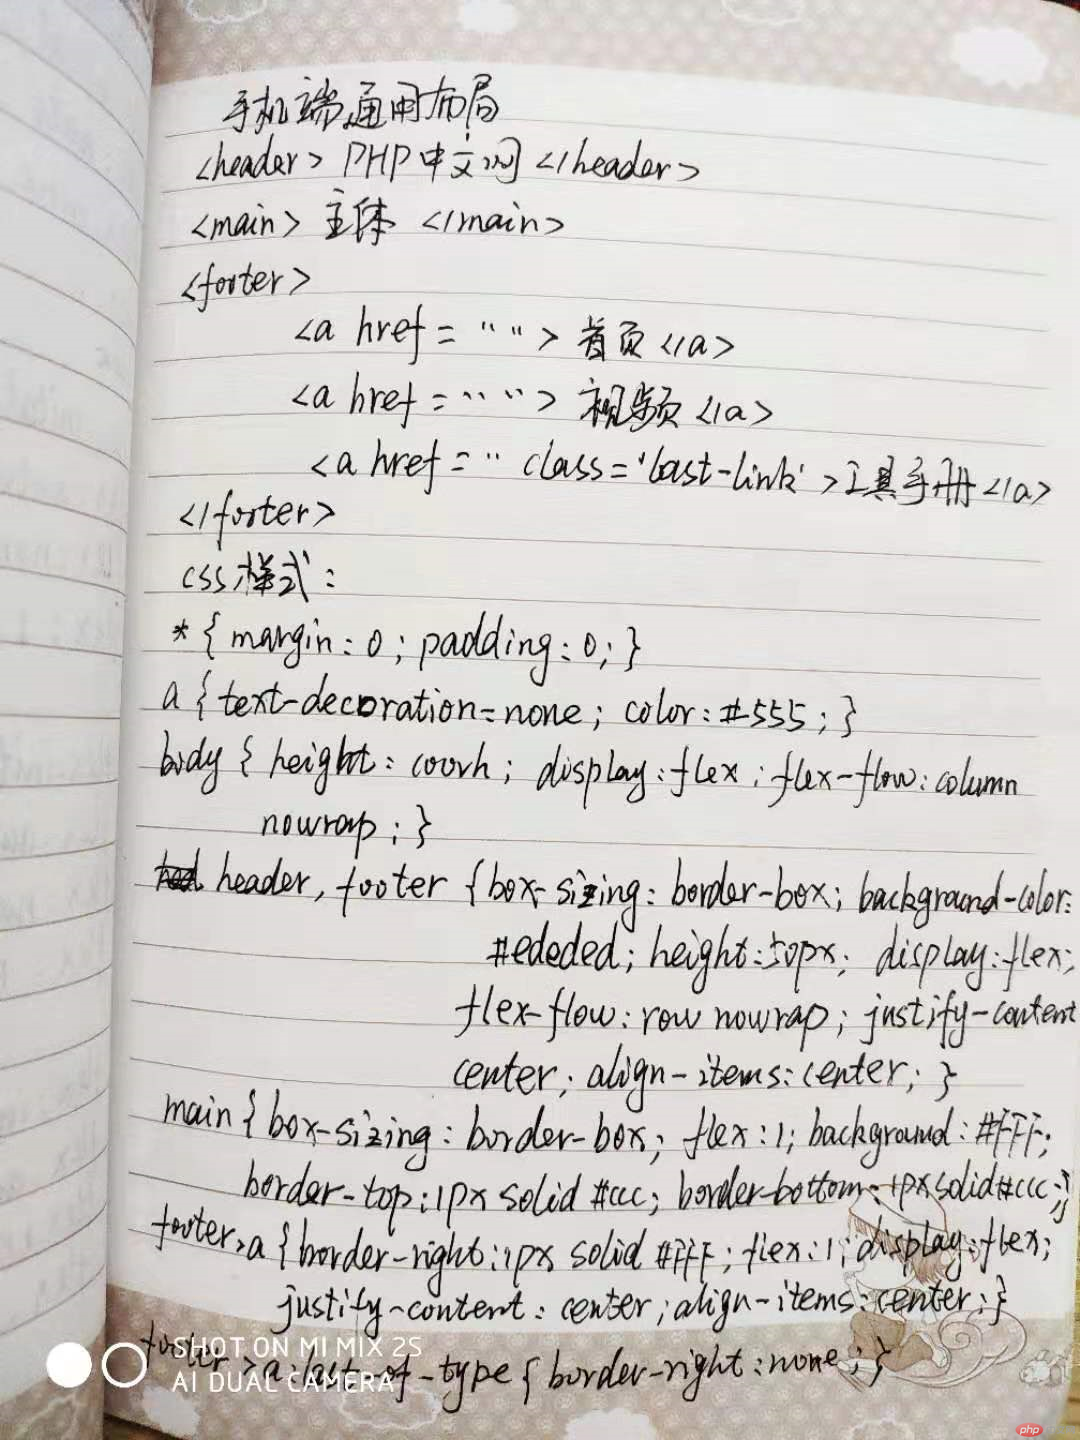 手机端通用布局
<header> PHP中文网 </header>
<main> 主体 </main>
<footer>
<a href = " "> 首页 </a>
<a href = " "> 视频 </a>
<a href = " class = 'last-link' > 工具手册 </a>
</footer>
css样式:
* { margin: 0; padding: 0; }
a { text-decoration=none; color: #555; }
body { height: 100vh; display: flex; flex-flow: column
nowrap; }
header, footer { box-sizing: border-box; background-color:
#ededed; height: 50px; display: flex;
flex-flow: row nowrap; justify-content
center; align-items: center; }
main { box-sizing: border-box; flex: 1; background: #FFF;
border-top: 1px solid #ccc; border-bottom: 1px solid #ccc; }
footer>a { border-right: 1px solid #FFF; flex: 1; display: flex;
justify-content: center; align-items: center; }
footer > a:last-of-type { border-right: none; }
SHOT ON MI MIX 2S
AI DUAL CAMERA
php